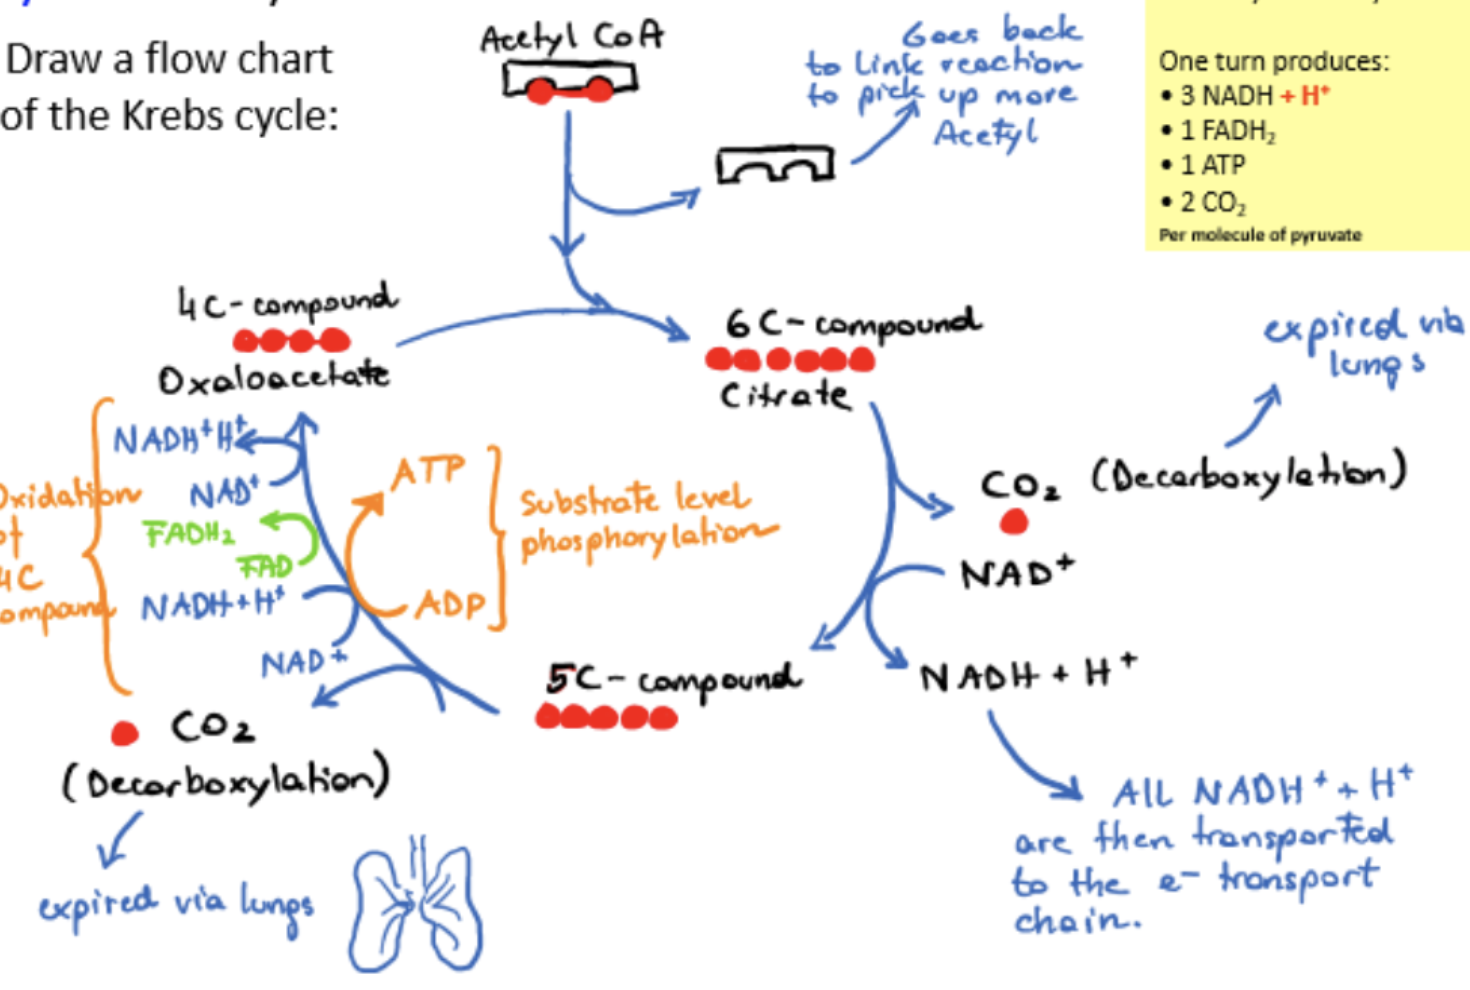 Draw a flow chart
of the Krebs cycle:
Acetyl CoA
Goes back
to link reaction
to pick up more
Acetyl
One turn produces:
• 3 NADH + H⁺
• 1 FADH₂
• 1 ATP
• 2 CO₂
Per molecule of pyruvate
4C-compound
Oxaloacetate
6C-compound
Citrate
expired via
lungs
CO₂ (Decarboxylation)
NAD⁺
NADH + H⁺
All NADH⁺ + H⁺
are then transported
to the e⁻ transport
chain.
5C-compound
ATP
ADP
Substrate level
phosphorylation
NADH⁺H⁺
NAD⁺
FADH₂
FAD
NADH+H⁺
NAD⁺
Oxidation
of
4C
compound
CO₂
(Decarboxylation)
expired via lungs